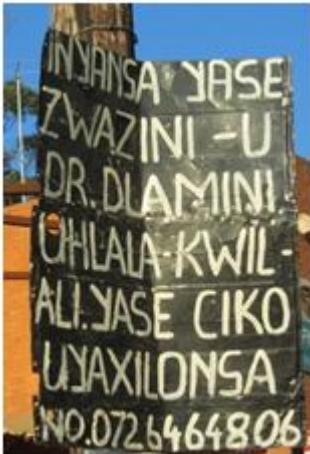 INYANSA YASE
ZWAZINI -U
DR. DLAMINI
UHLALA-KWIL-
ALI.YASE CIKO
UYAXILONSA
NO.0726464806